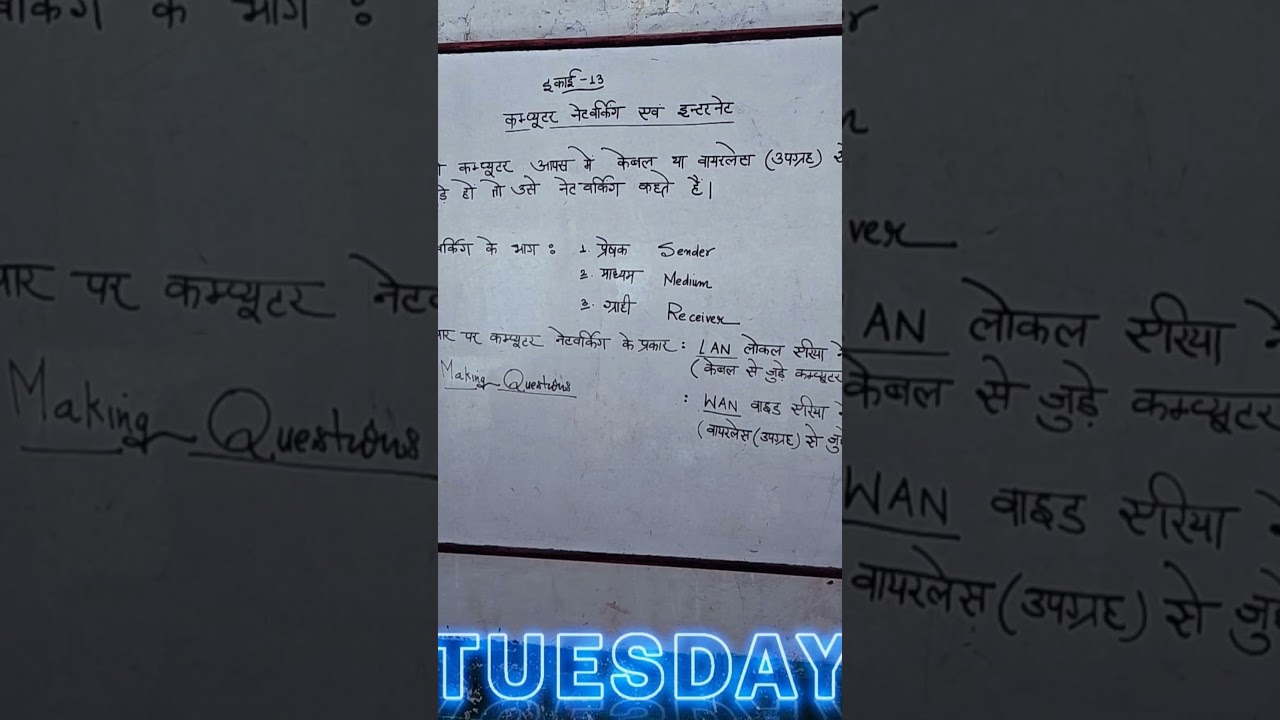 इकाई-13
कम्प्यूटर नेटवर्किंग एवं इन्टरनेट
कम्प्यूटर आपस में केबल या वायरलेस (उपग्रह) से
हो तो उसे नेटवर्किंग कहते हैं।
र्किंग के भाग : 1. प्रेषक Sender
2. माध्यम Medium
3. ग्राही Receiver
पर कम्प्यूटर नेटवर्किंग के प्रकार : LAN लोकल एरिया ने
(केबल से जुड़े कम्प्यूटर
Making Questions
: WAN वाइड एरिया ने
(वायरलेस (उपग्रह) से जुड़े
TUESDAY